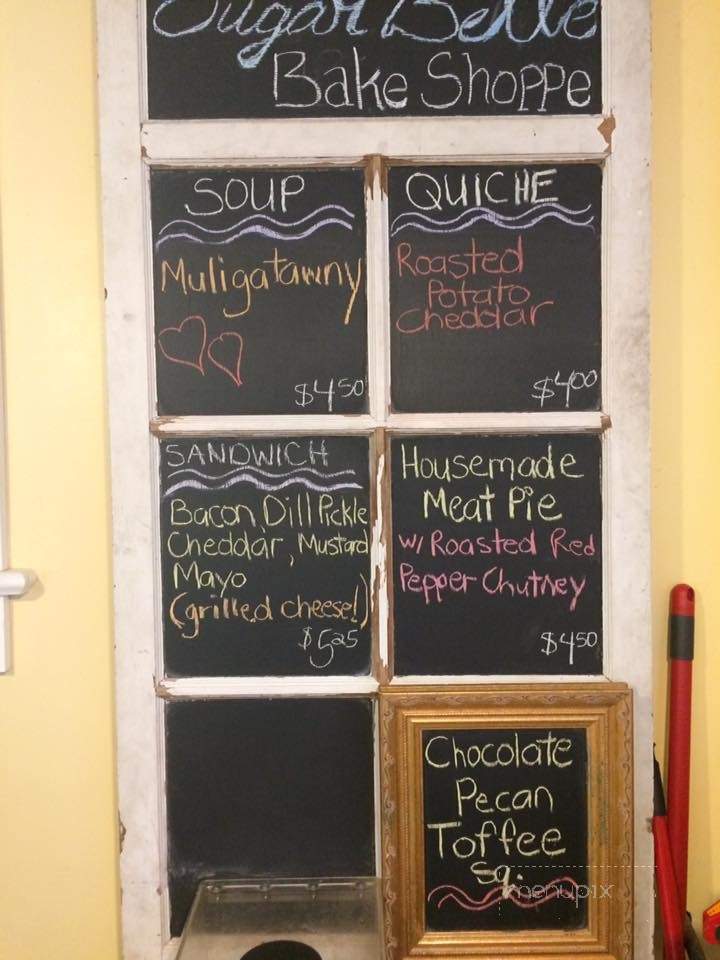 Sugar Belle
Bake Shoppe
SOUP
Muligatawny
$4.50
QUICHE
Roasted
Potato
Cheddar
$4.00
SANDWICH
Bacon, Dill Pickle
Cheddar, Mustard
Mayo
(grilled cheese!)
$5.25
Housemade
Meat Pie
w/ Roasted Red
Pepper Chutney
$4.50
Chocolate
Pecan
Toffee
sq.
menupix